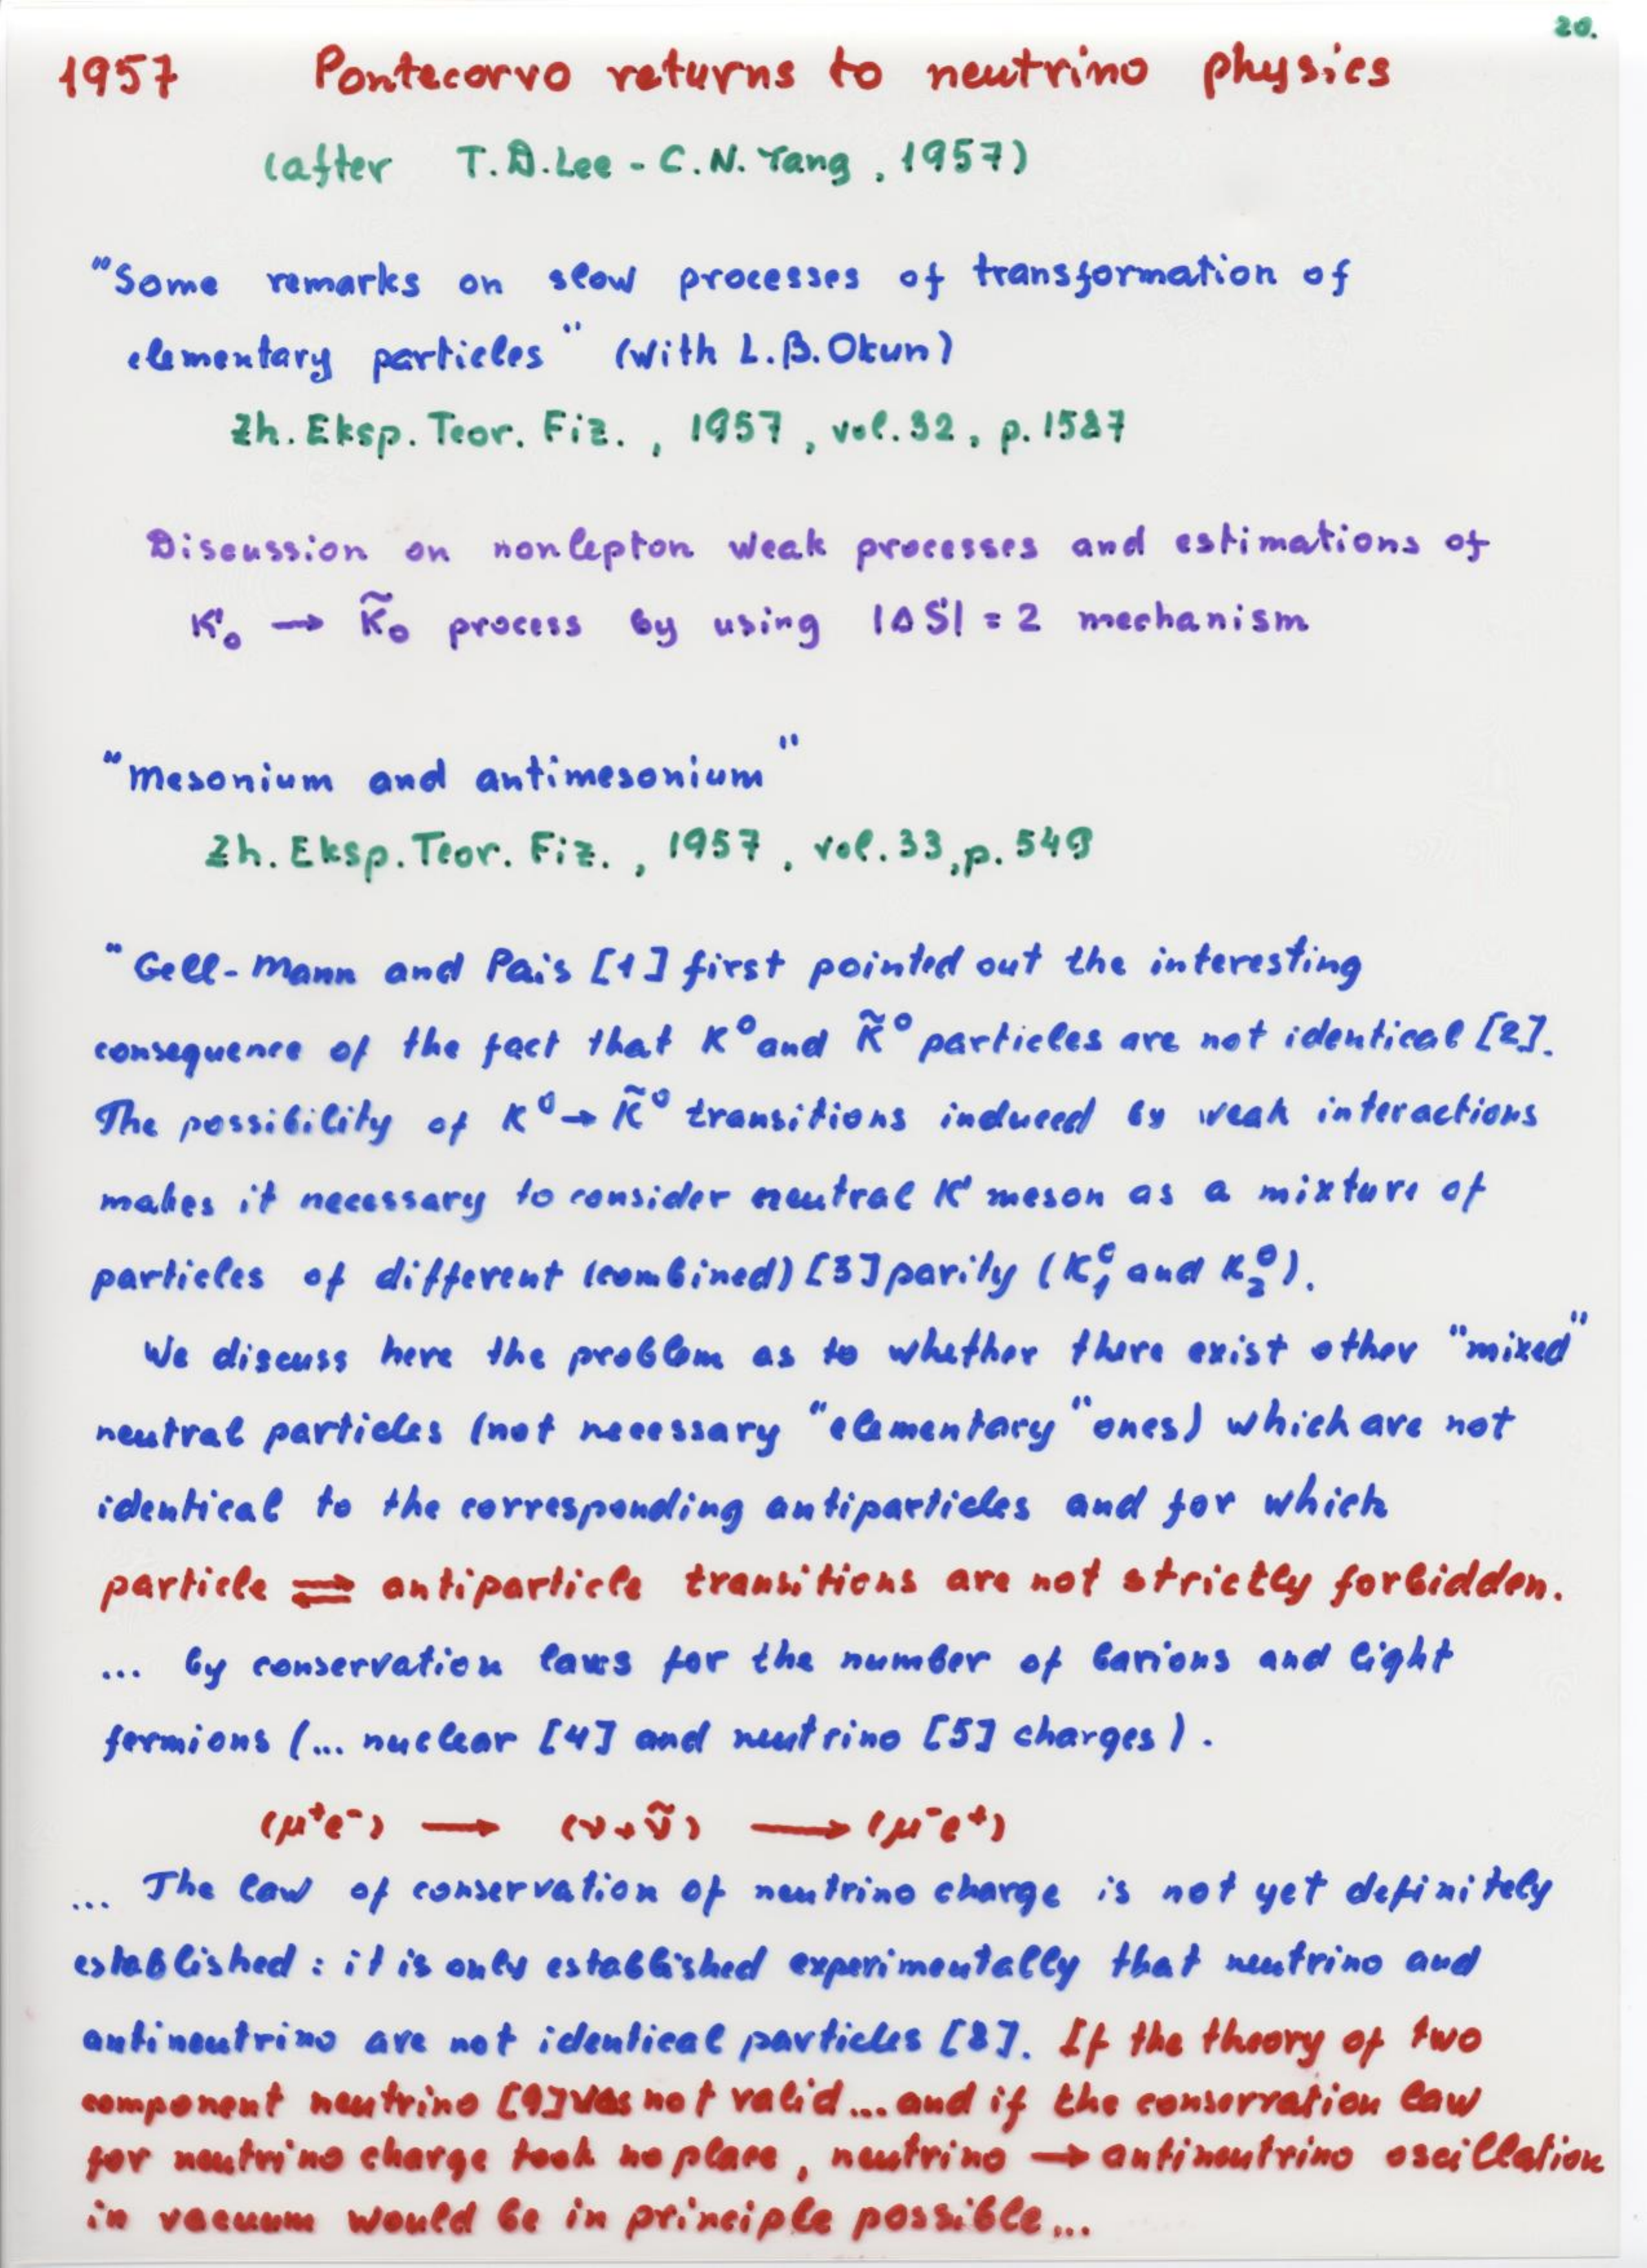 20.
1957 Pontecorvo returns to neutrino physics
(after T.D.Lee - C.N. Yang, 1957)
"Some remarks on slow processes of transformation of
elementary particles" (with L.B.Okun)
Zh. Eksp. Teor. Fiz., 1957, vol. 32, p. 1587
Discussion on nonlepton weak processes and estimations of
K₀ → K̃₀ process by using |ΔS| = 2 mechanism
"Mesonium and antimesonium"
Zh. Eksp. Teor. Fiz., 1957, vol. 33, p. 549
"Gell-Mann and Pais [1] first pointed out the interesting
consequence of the fact that K⁰ and K̃⁰ particles are not identical [2].
The possibility of K⁰ → K̃⁰ transitions induced by weak interactions
makes it necessary to consider neutral K meson as a mixture of
particles of different (combined) [3] parity (K₁⁰ and K₂⁰).
We discuss here the problem as to whether there exist other "mixed"
neutral particles (not necessary "elementary" ones) which are not
identical to the corresponding antiparticles and for which
particle ⇌ antiparticle transitions are not strictly forbidden.
... by conservation laws for the number of barions and light
fermions (... nuclear [4] and neutrino [5] charges).
(μ⁺e⁻) → (ν+ν̃) → (μ⁻e⁺)
... The law of conservation of neutrino charge is not yet definitely
established: it is only established experimentally that neutrino and
antineutrino are not identical particles [8]. If the theory of two
component neutrino [9] was not valid... and if the conservation law
for neutrino charge took no place, neutrino → antineutrino oscillation
in vacuum would be in principle possible...